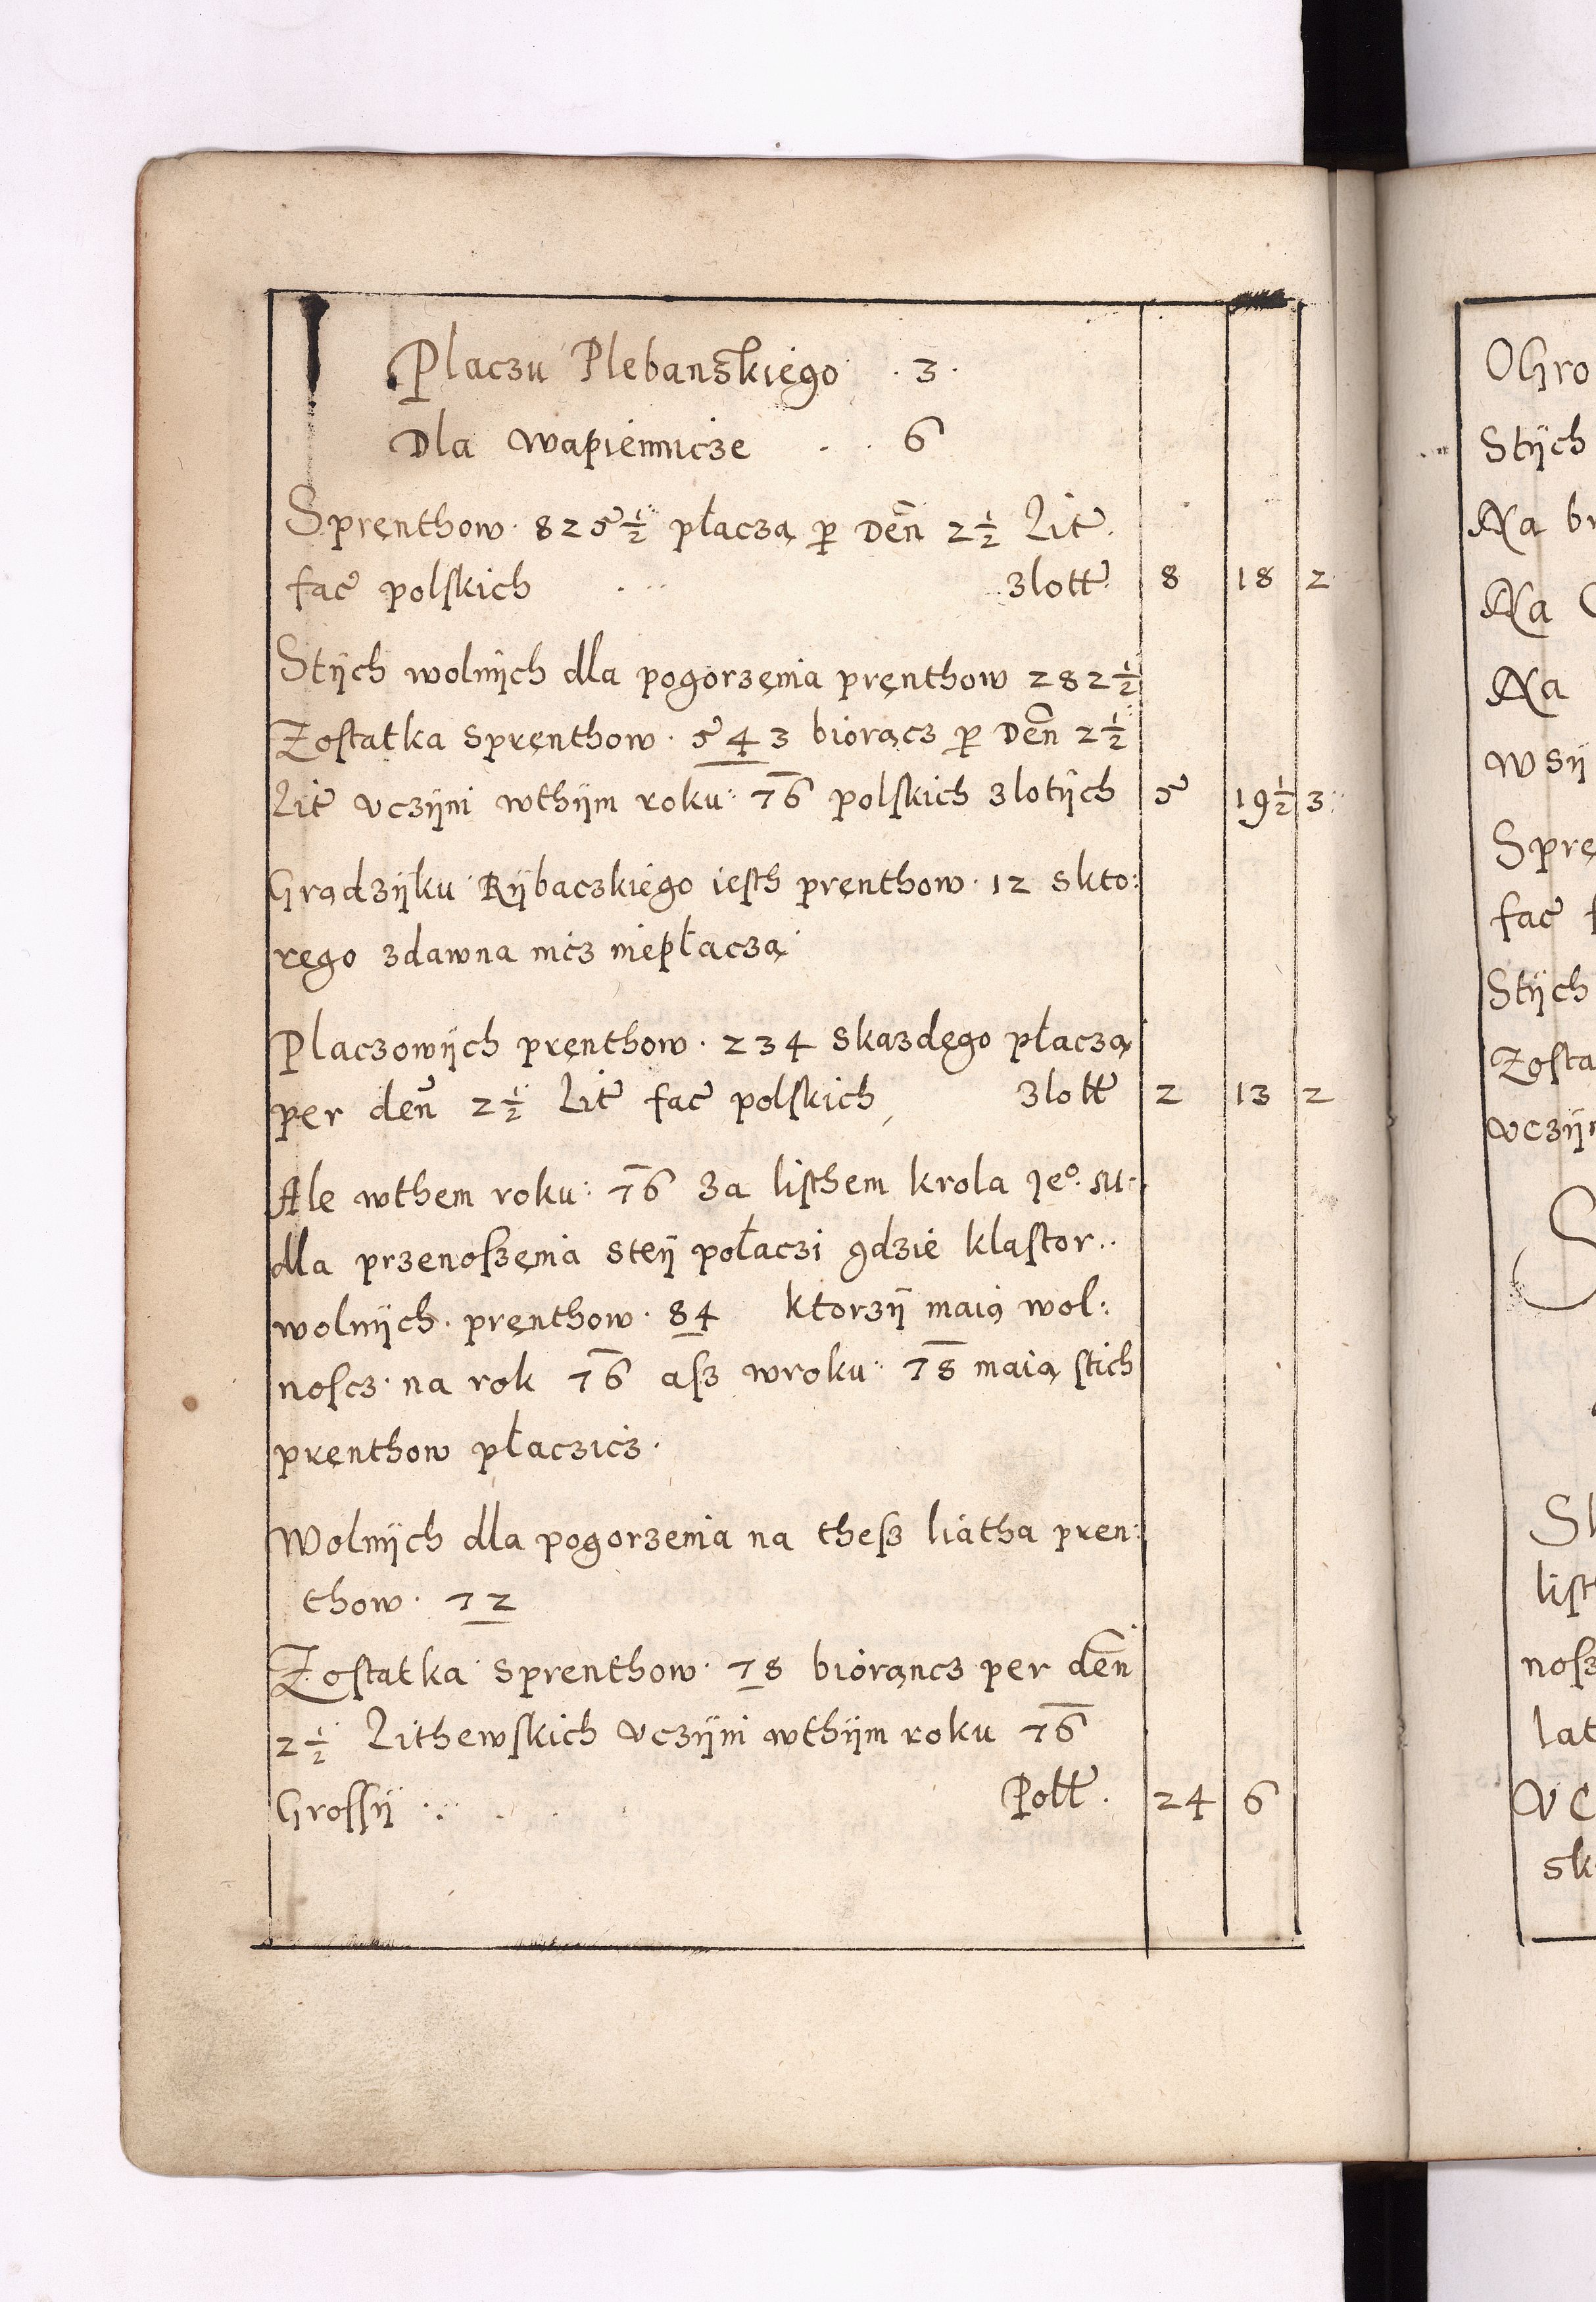 Placzu Plebanskiego . 3 .
Dla wapiennicze . . 6
Sprenthow . 825 ½ płaczą p Den 2 ½ Lit
fac polskich ... złott 8 18 2
Stÿch wolnÿch dla pogorzęnia pręnthow 282 ½
Zostatka spręnthow . 543 biorącz p Den 2 ½
Lit vczÿni wthÿm roku : 76 polskich złotÿch 5 19 ½ 3
Grądzÿku Rÿbaczkiego iesth prenthow . 12 skto:
rego zdawna nicz niepłaczą
Placzowÿch pręnthow . 234 skazdęgo płaczą
per den 2 ½ Lit fac polskich złott 2 13 2
Ale wthem roku : 76 za listhem krola Je°.
dla przenoszęnia steÿ połaczi gdzie klastor ..
wolnÿch . pręnthow . 84 ktorzÿ maią wol:
noscz . na rok 76 asz wroku : 78 maią stich
pręnthow płaczicz .
Wolnÿch dla pogorzenia na thesz liatha pren:
thow . 72
Zostatka sprenthow . 78 biorąncz per den
2 ½ Lithewskich vczÿni wthÿm roku 76
Grossÿ ... Poll . 24 6
Ohro
Stÿch
Na br
Na
Na
wsÿ
Sprę
fac
Stÿch
Zosta
vczÿn
S
list
nosz
lat
vc
sk